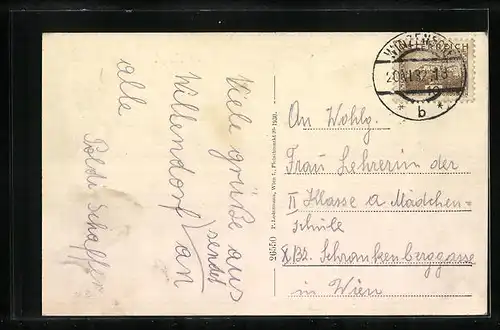 Viele grüße aus
Willendorf sendet
an
alle
Poldi Schaffer
26550 P. Ledermann, Wien I., Fleischmarkt 20 1930.
WINZENDORF
b
An Wohlg.
Frau Lehrerin der
II Klasse a Mädchen-
schule
X. Bz. Schrankenberggasse
in Wien